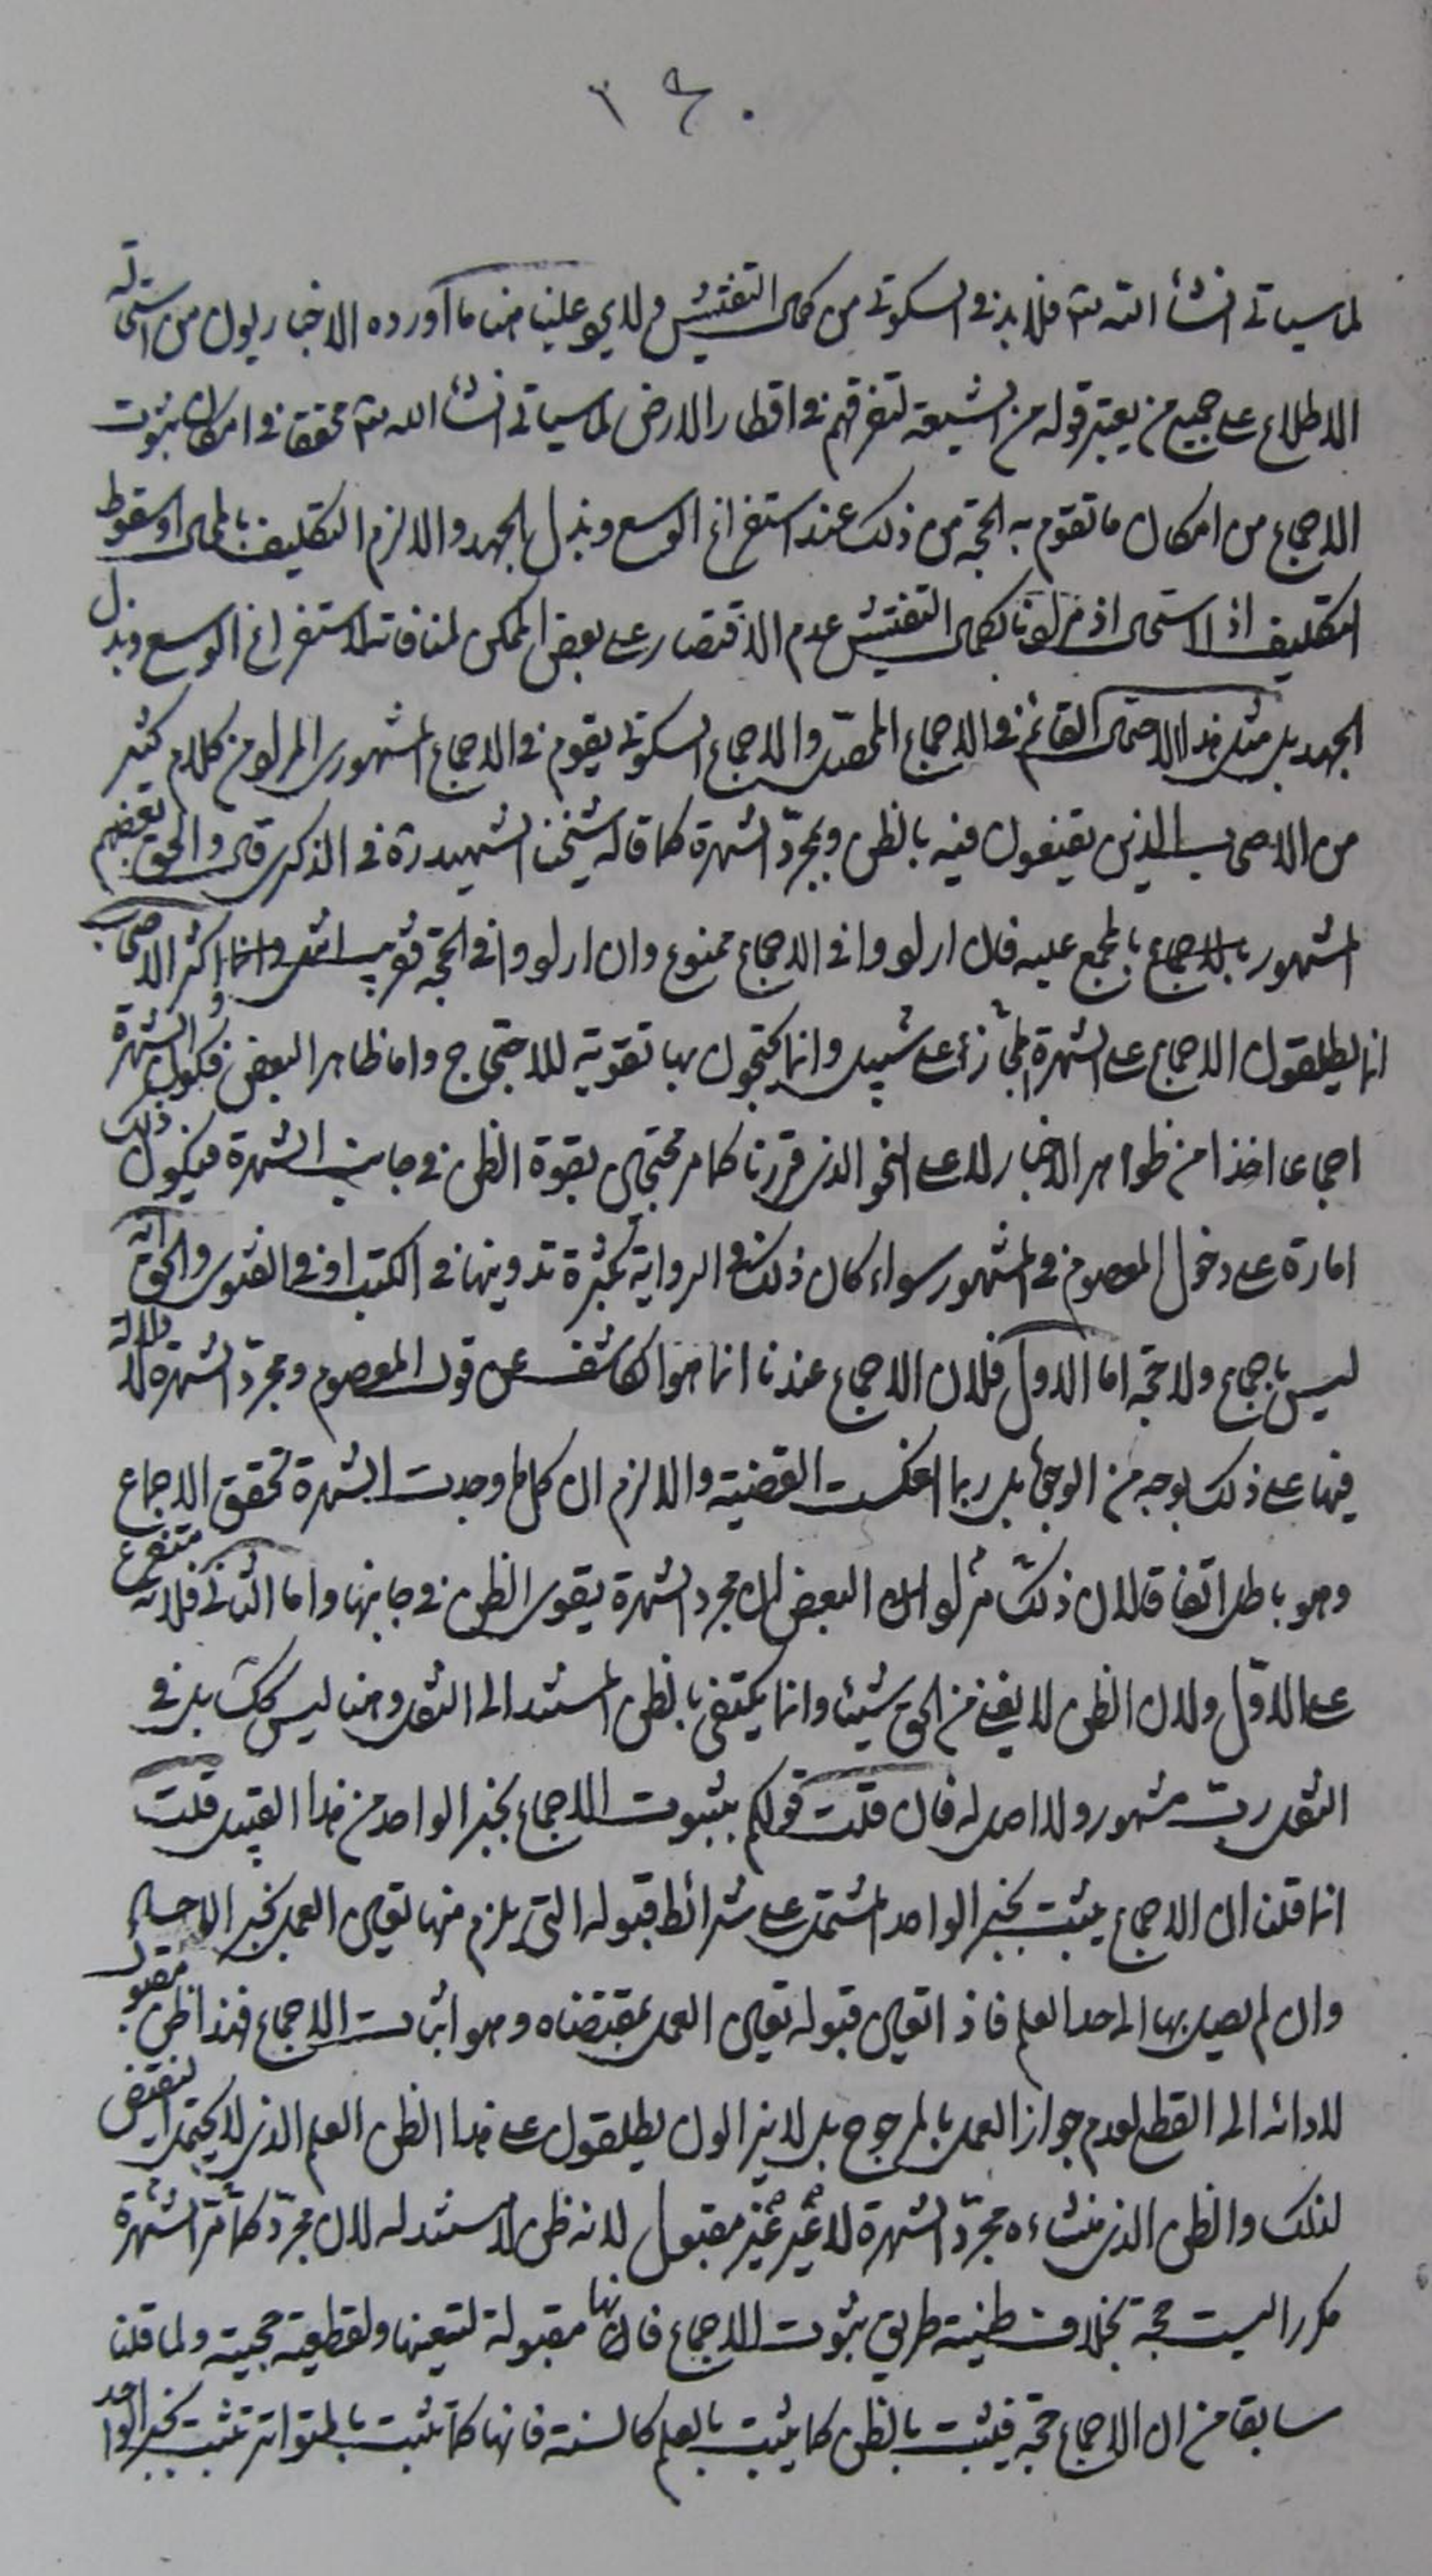 ٢٩٠
لما سياتى انشأ الله تع فلا بد فى السكوتى من كمال التفتيش ولا يرد علينا هنا ما أورده الاخباريون من استحالة
الاطلاع على جميع من يعتبر قوله من الشيعة لتفرقهم فى اقطار الارض لما سياتى انشأ الله تع محققا فى امكان ثبوت
الاجماع من امكان ما تقوم به الحجة من ذلك عند استفراغ الوسع وبذل الجهد والا لزم التكليف بالمحال او سقوط
التكليف اذ الاستحال اذ مرادنا بكمال التفتيش عدم الاقتصار على بعض الممكن لمنافاته لاستفراغ الوسع وبذل
الجهد بل مثل هذا الاحتمال القائم فى الاجماع المحصّل والاجماع السكوتى يقوم فى الاجماع المشهورى المراد من كلام كثير
من الاصحاب الذين يقنعون فيه بالظن وبمجرّد الشهرة كما قاله شيخنا الشهيد ره فى الذكرى قال والحق بعضهم
المشهور بالمجمع عليه فان ارادوا فى الاجماع ممنوع وان ارادوا فى الحجة فقريب انتهى واكثر الاصحاب
انما يطلقون الاجماع على الشهرة مجازا على سبيل وانما يحتجون بها تقوية للاحتجاج واما ظاهر البعض فكون الشهرة
اجماعا اخذا من ظواهر الاخبار لا على النحو الذى قررنا كما مر محتجا بقوة الظن فى جانب الشهرة فيكون ذلك
امارة على دخول المعصوم فى المشهور سواء كان ذلك فى الرواية بكثرة تدوينها فى الكتب او فى الفتوى والحق انه
ليس باجماع ولا حجة اما الاول فلان الاجماع عندنا انما هو الكاشف عن قول المعصوم ومجرّد الشهرة لا دلالة
فيها على ذلك بوجه من الوجوه بل ربما انعكست القضية والا لزم ان كلما وجدت الشهرة تحقق الاجماع
وهو باطل اتفاقا لان ذلك البعض ان مجرد الشهرة يقوى الظن فى جانبها واما الثانى فلانه متفرع
على الاوّل ولان الظن لا يغنى من الحق شيئا وانما يكتفى بالظن المستند الى النقل وهنا ليس كك بل فى
النقل رب مشهور ولا اصل له فان قلت قولكم بثبوت الاجماع بخبر الواحد من هذا القبيل قلت
انما قلنا ان الاجماع يثبت بخبر الواحد المشتمل على شرائط قبوله التى يلزم منها تعين العمل بخبر الآحاد
وان لم يصل بها الى حد العلم فاذا تعين قبوله تعين العمل بمقتضاه وهو اثبات الاجماع فهذا ظن مقبول
لادائه الى القطع لعدم جواز العمل بالمرجوح بل لا يزالون يطلقون على هذا الظن العلم الذى لا يحتمل النقيض
لذلك والظن الذى منشاءه مجرّد الشهرة لا غير غير مقبول لانه ظن لا مستند له لان مجرّد الشهرة كما مر
مكررا ليست حجة بخلاف ظنية طريق ثبوت الاجماع فانها مقبولة لتعينها ولقطعية حجيته ولما قلنا
سابقا من ان الاجماع حجة فيثبت بالظن كما يثبت بالعلم كالسنة فانها كما تثبت بالمتواتر تثبت بخبر الواحد